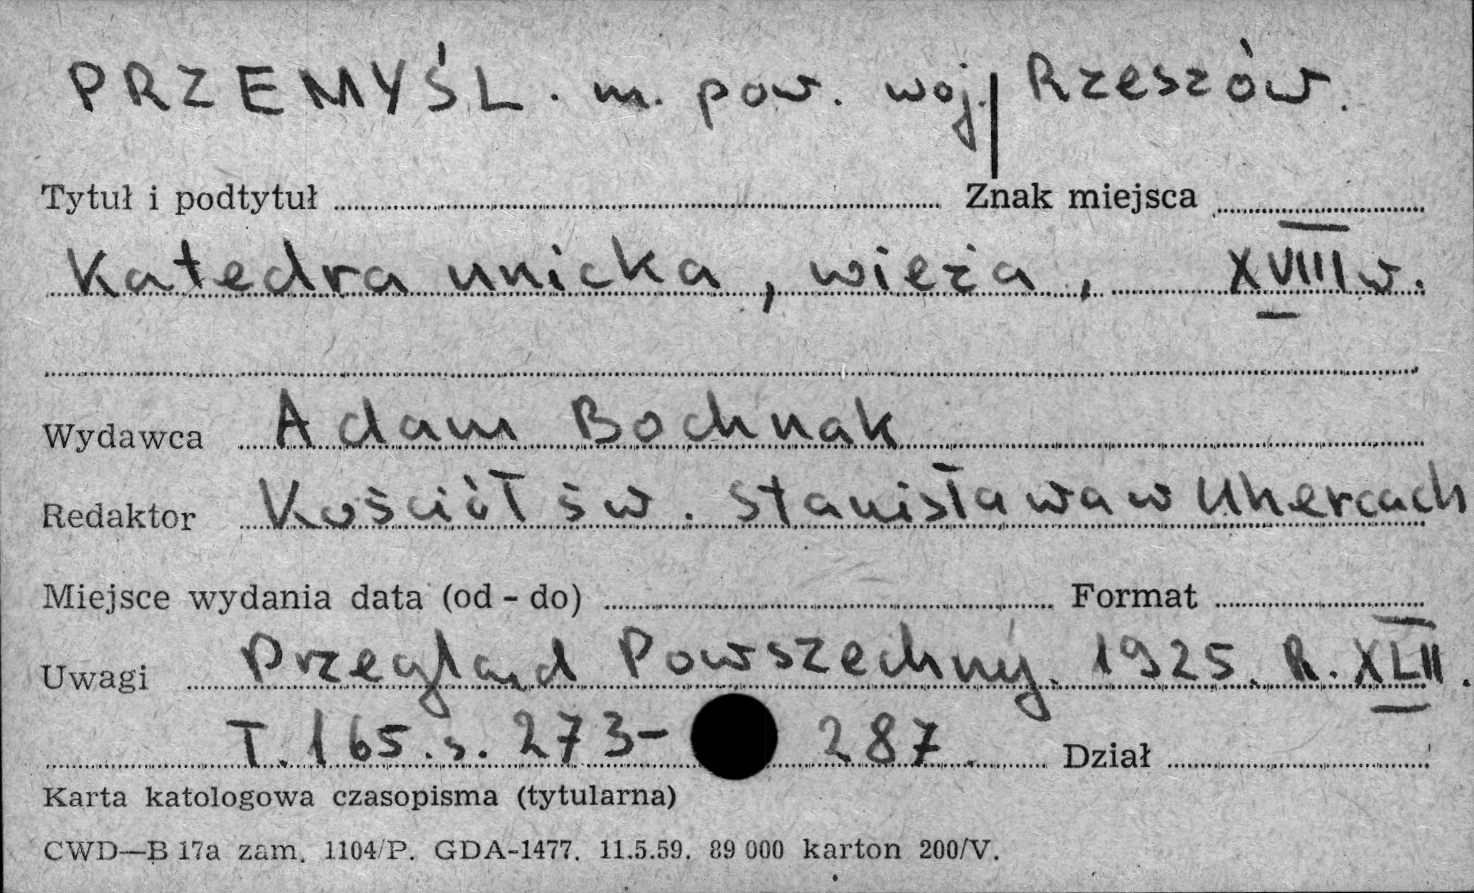 PRZEMYŚL. m. pow. woj. | Rzeszów.
Tytuł i podtytuł Znak miejsca
Katedra unicka, wieża, XVIII w.
Wydawca Adam Bochnak
Redaktor Kościół św. Stanisława w Uhercach
Miejsce wydania data (od - do) Format
Uwagi Przegląd Powszechny. 1925. R. XLII.
T. 165. s. 273- 287. Dział
Karta katologowa czasopisma (tytularna)
CWD—B 17a zam. 1104/P. GDA-1477. 11.5.59. 89 000 karton 200/V.